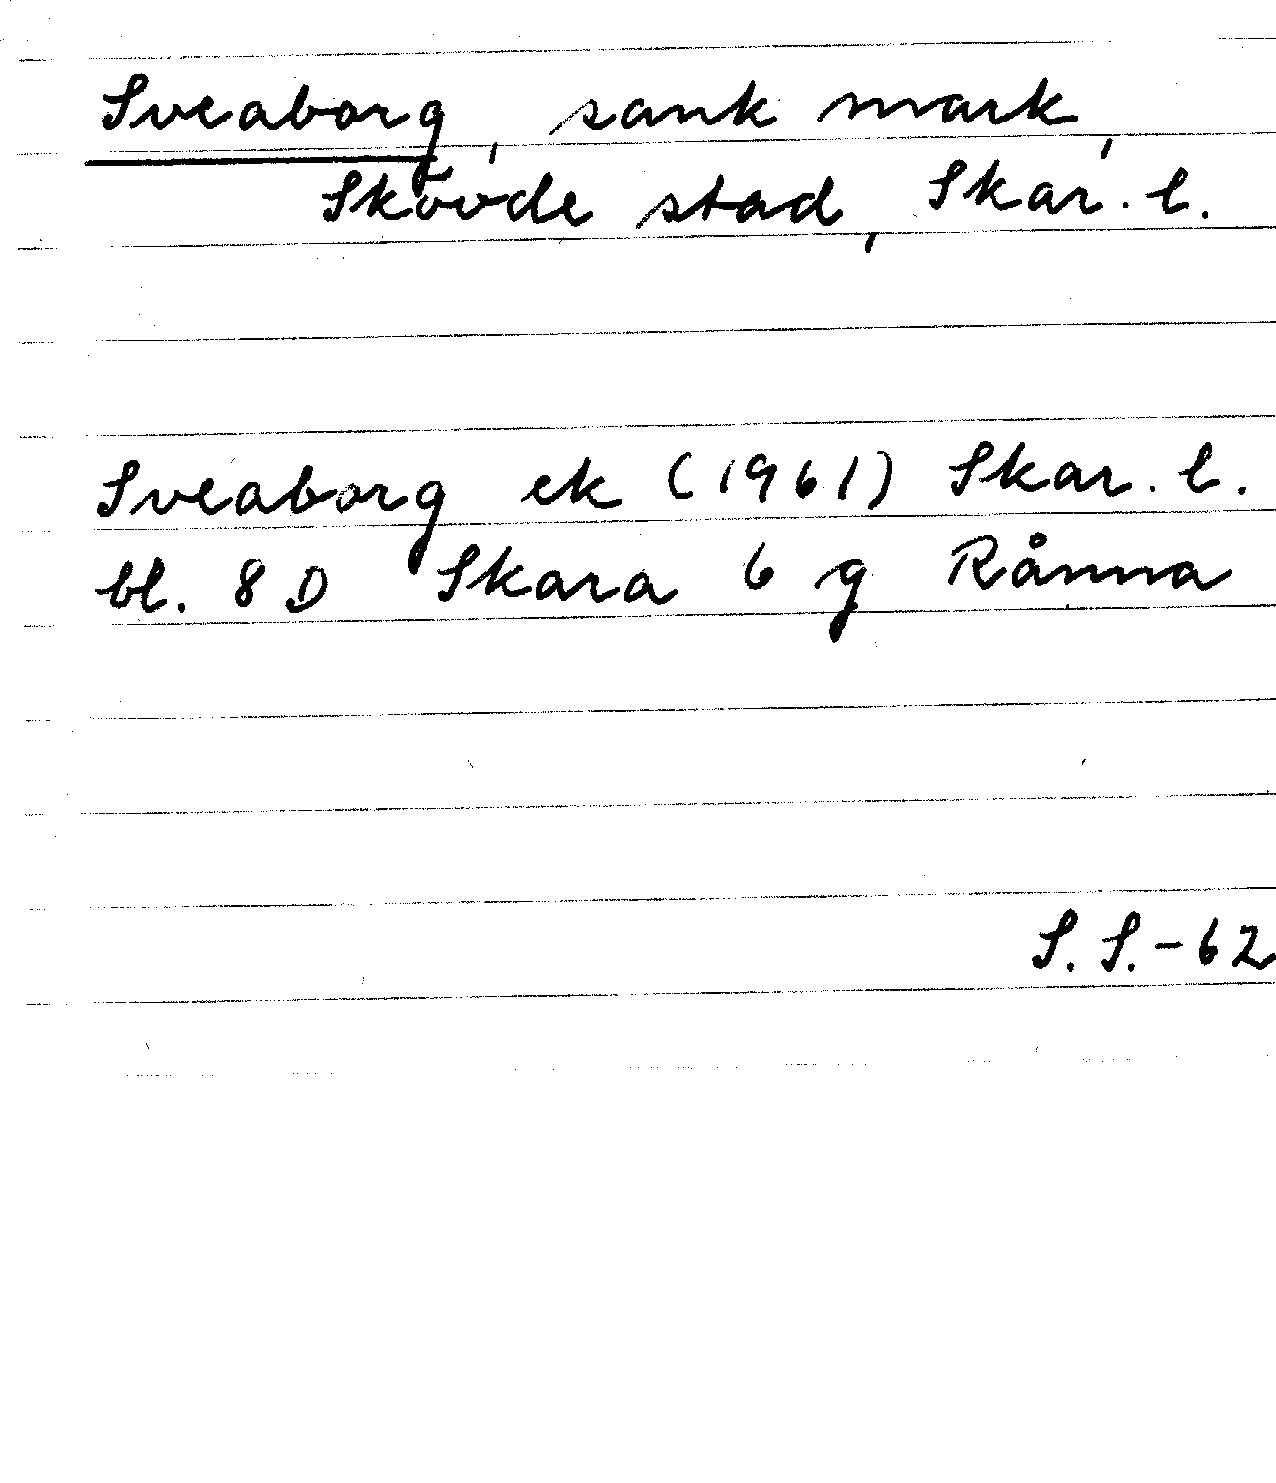 Sveaborg, sank mark,
Skövde stad, Skar. l.
Sveaborg ek (1961) Skar. l.
bl. 8 D Skara 6 g Rånna
S. S. - 62